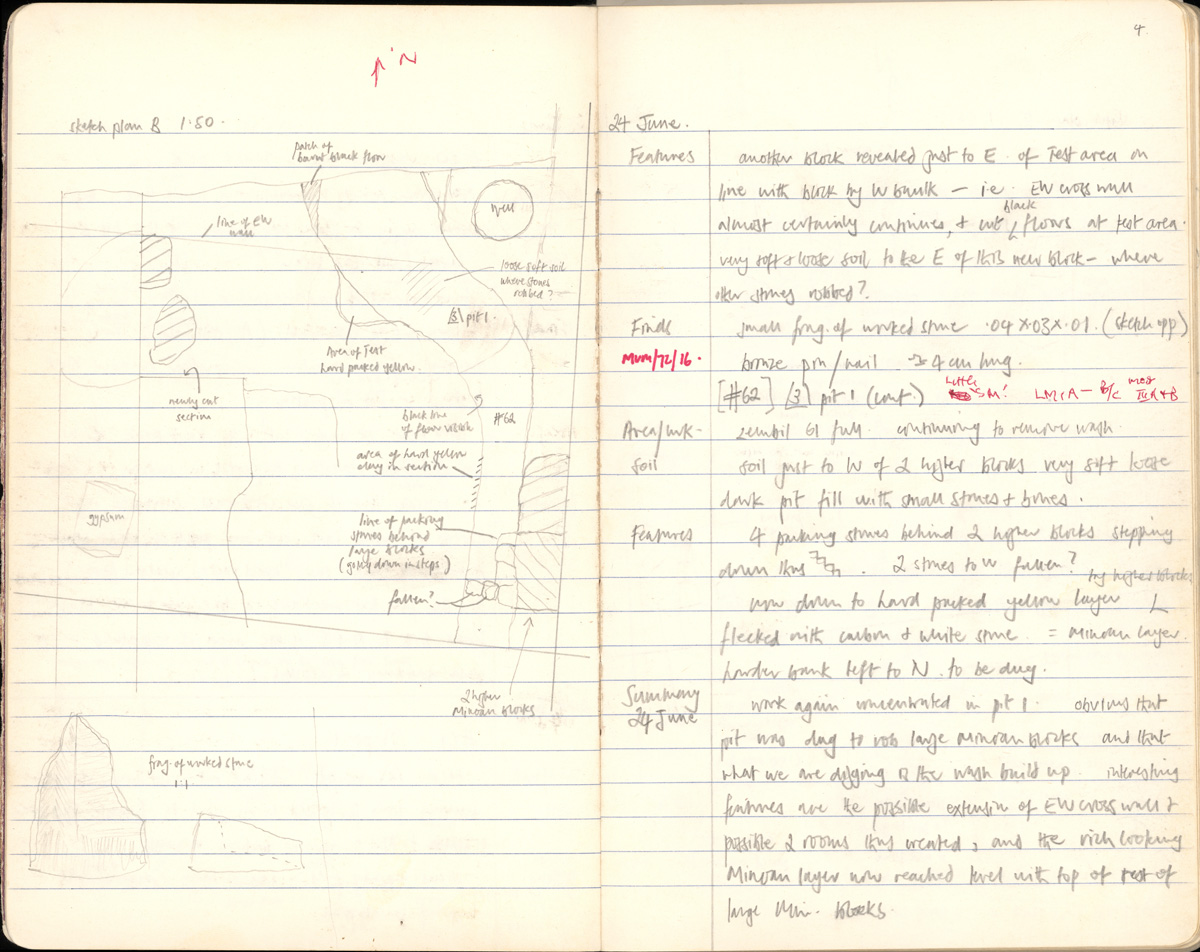 N
sketch plan B 1:50.
patch of
burnt black floor
line of EW
wall
Well
loose soft soil
where stones
robbed?
3 pit 1.
Area of Test
hard packed yellow.
newly cut
section
black line
of floor
#62
area of hard yellow
clay in section
gypsum
line of packing
stones behind
large blocks
(going down in steps)
fallen?
2 higher
Minoan Blocks
frag. of worked stone
1:1
4
24 June.
Features another block revealed just to E. of Test area on
line with block by W baulk – i.e. EW cross wall
almost certainly continues, & cut black floors at test area.
very soft & loose soil to the E of this new block – where
other stones robbed?
Finds small frag. of worked stone .04 x .03 x .01. (sketch opp)
MUM/72/16. bronze pin/nail 4 cm long.
[#62] 3 pit 1 (cont.) Little SM? LM1A – B/C most III A + B
Area/wk- zembil 61 full. continuing to remove wash.
Soil soil just to W of 2 higher blocks very soft loose
dark pit fill with small stones & bones.
Features 4 packing stones behind 2 higher blocks stepping
down thus . 2 stones to W fallen?
now down to hard packed yellow layer by higher blocks
flecked with carbon & white stone. = Minoan layer.
harder bank left to N. to be dug.
Summary
24 June work again concentrated in pit 1. obvious that
pit was dug to rob large Minoan blocks and that
what we are digging is the wash build up. interesting
features are the possible extension of EW cross wall &
possible 2 rooms thus created, and the rich looking
Minoan layer now reached level with top of rest of
large Min. blocks.